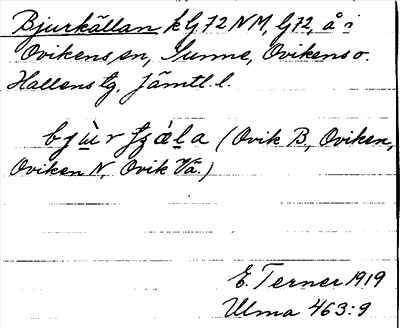 Bjurkällan k G72 NM, G72, å i
Ovikens sn, Sunne, Ovikens o.
Hallens tg, Jämtl. l.
(Ovik B., Oviken,
Oviken N, Ovik Vä.)
E. Terner 1919
Ulma 463:9